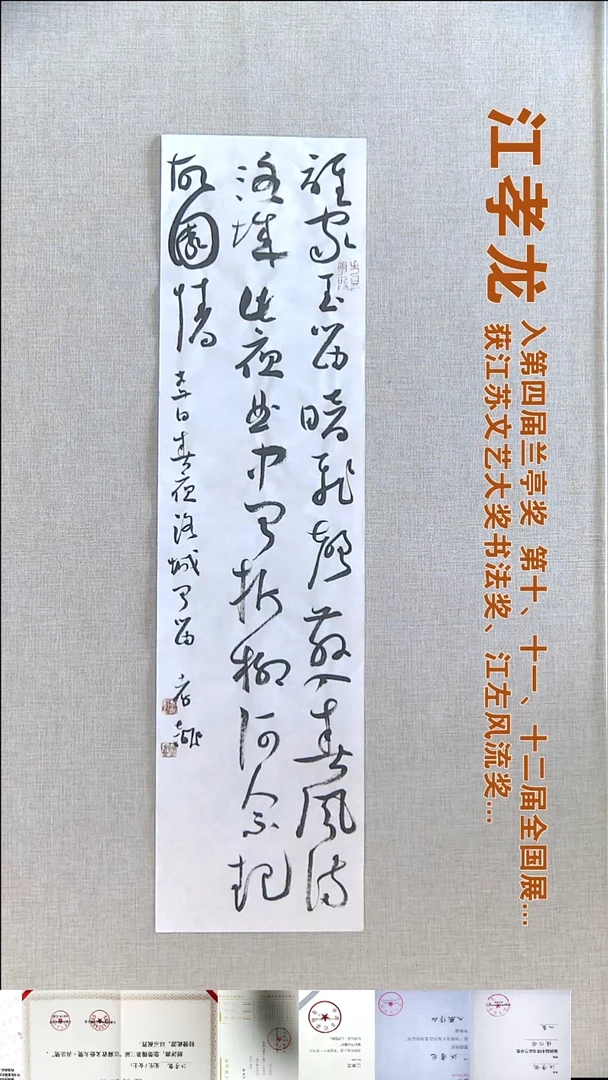 江孝龙
入第四届兰亭奖 第十、十一、十二届全国展...
获江苏文艺大奖书法奖、江左风流奖...
誰家玉笛暗飛聲散入春風滿
洛城此夜曲中聞折柳何人不起
故園情 李白春夜洛城聞笛 孝龍